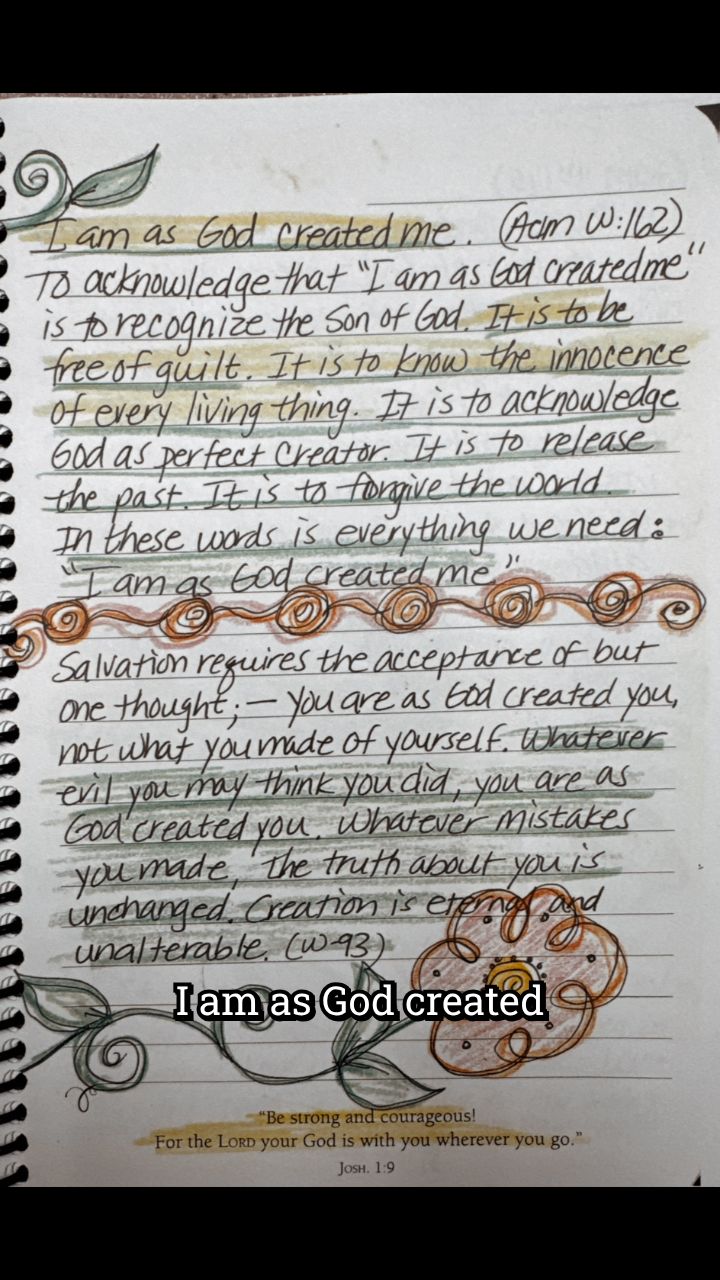 I am as God created me. (Acim W:162)
To acknowledge that "I am as God created me"
is to recognize the Son of God. It is to be
free of guilt. It is to know the innocence
of every living thing. It is to acknowledge
God as perfect Creator. It is to release
the past. It is to forgive the world.
In these words is everything we need:
"I am as God created me."
Salvation requires the acceptance of but
one thought; — you are as God created you,
not what you made of yourself. Whatever
evil you may think you did, you are as
God created you. Whatever mistakes
you made, the truth about you is
unchanged. Creation is eternal and
unalterable. (W-93)
I am as God created
"Be strong and courageous!
For the LORD your God is with you wherever you go."
JOSH. 1:9